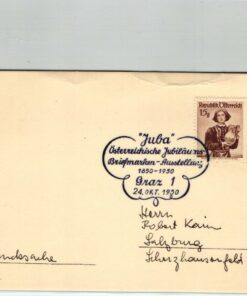 "Juba"
Republik Österreich
15g
Österreichische Jubiläums
Briefmarken-Ausstellung
1850-1950
Graz 1
24. OKT. 1950
Herrn
Robert Karin
Salzburg
Scherzhauserfeld